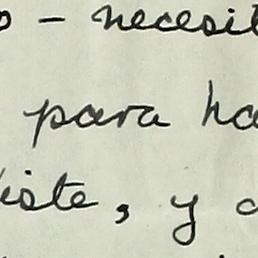 – necesit
para ha
iste, y